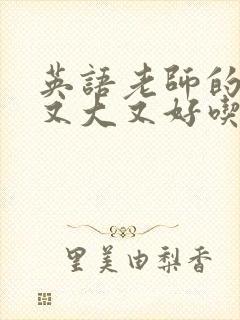 英語老師的
又大又好喫
里美由梨香